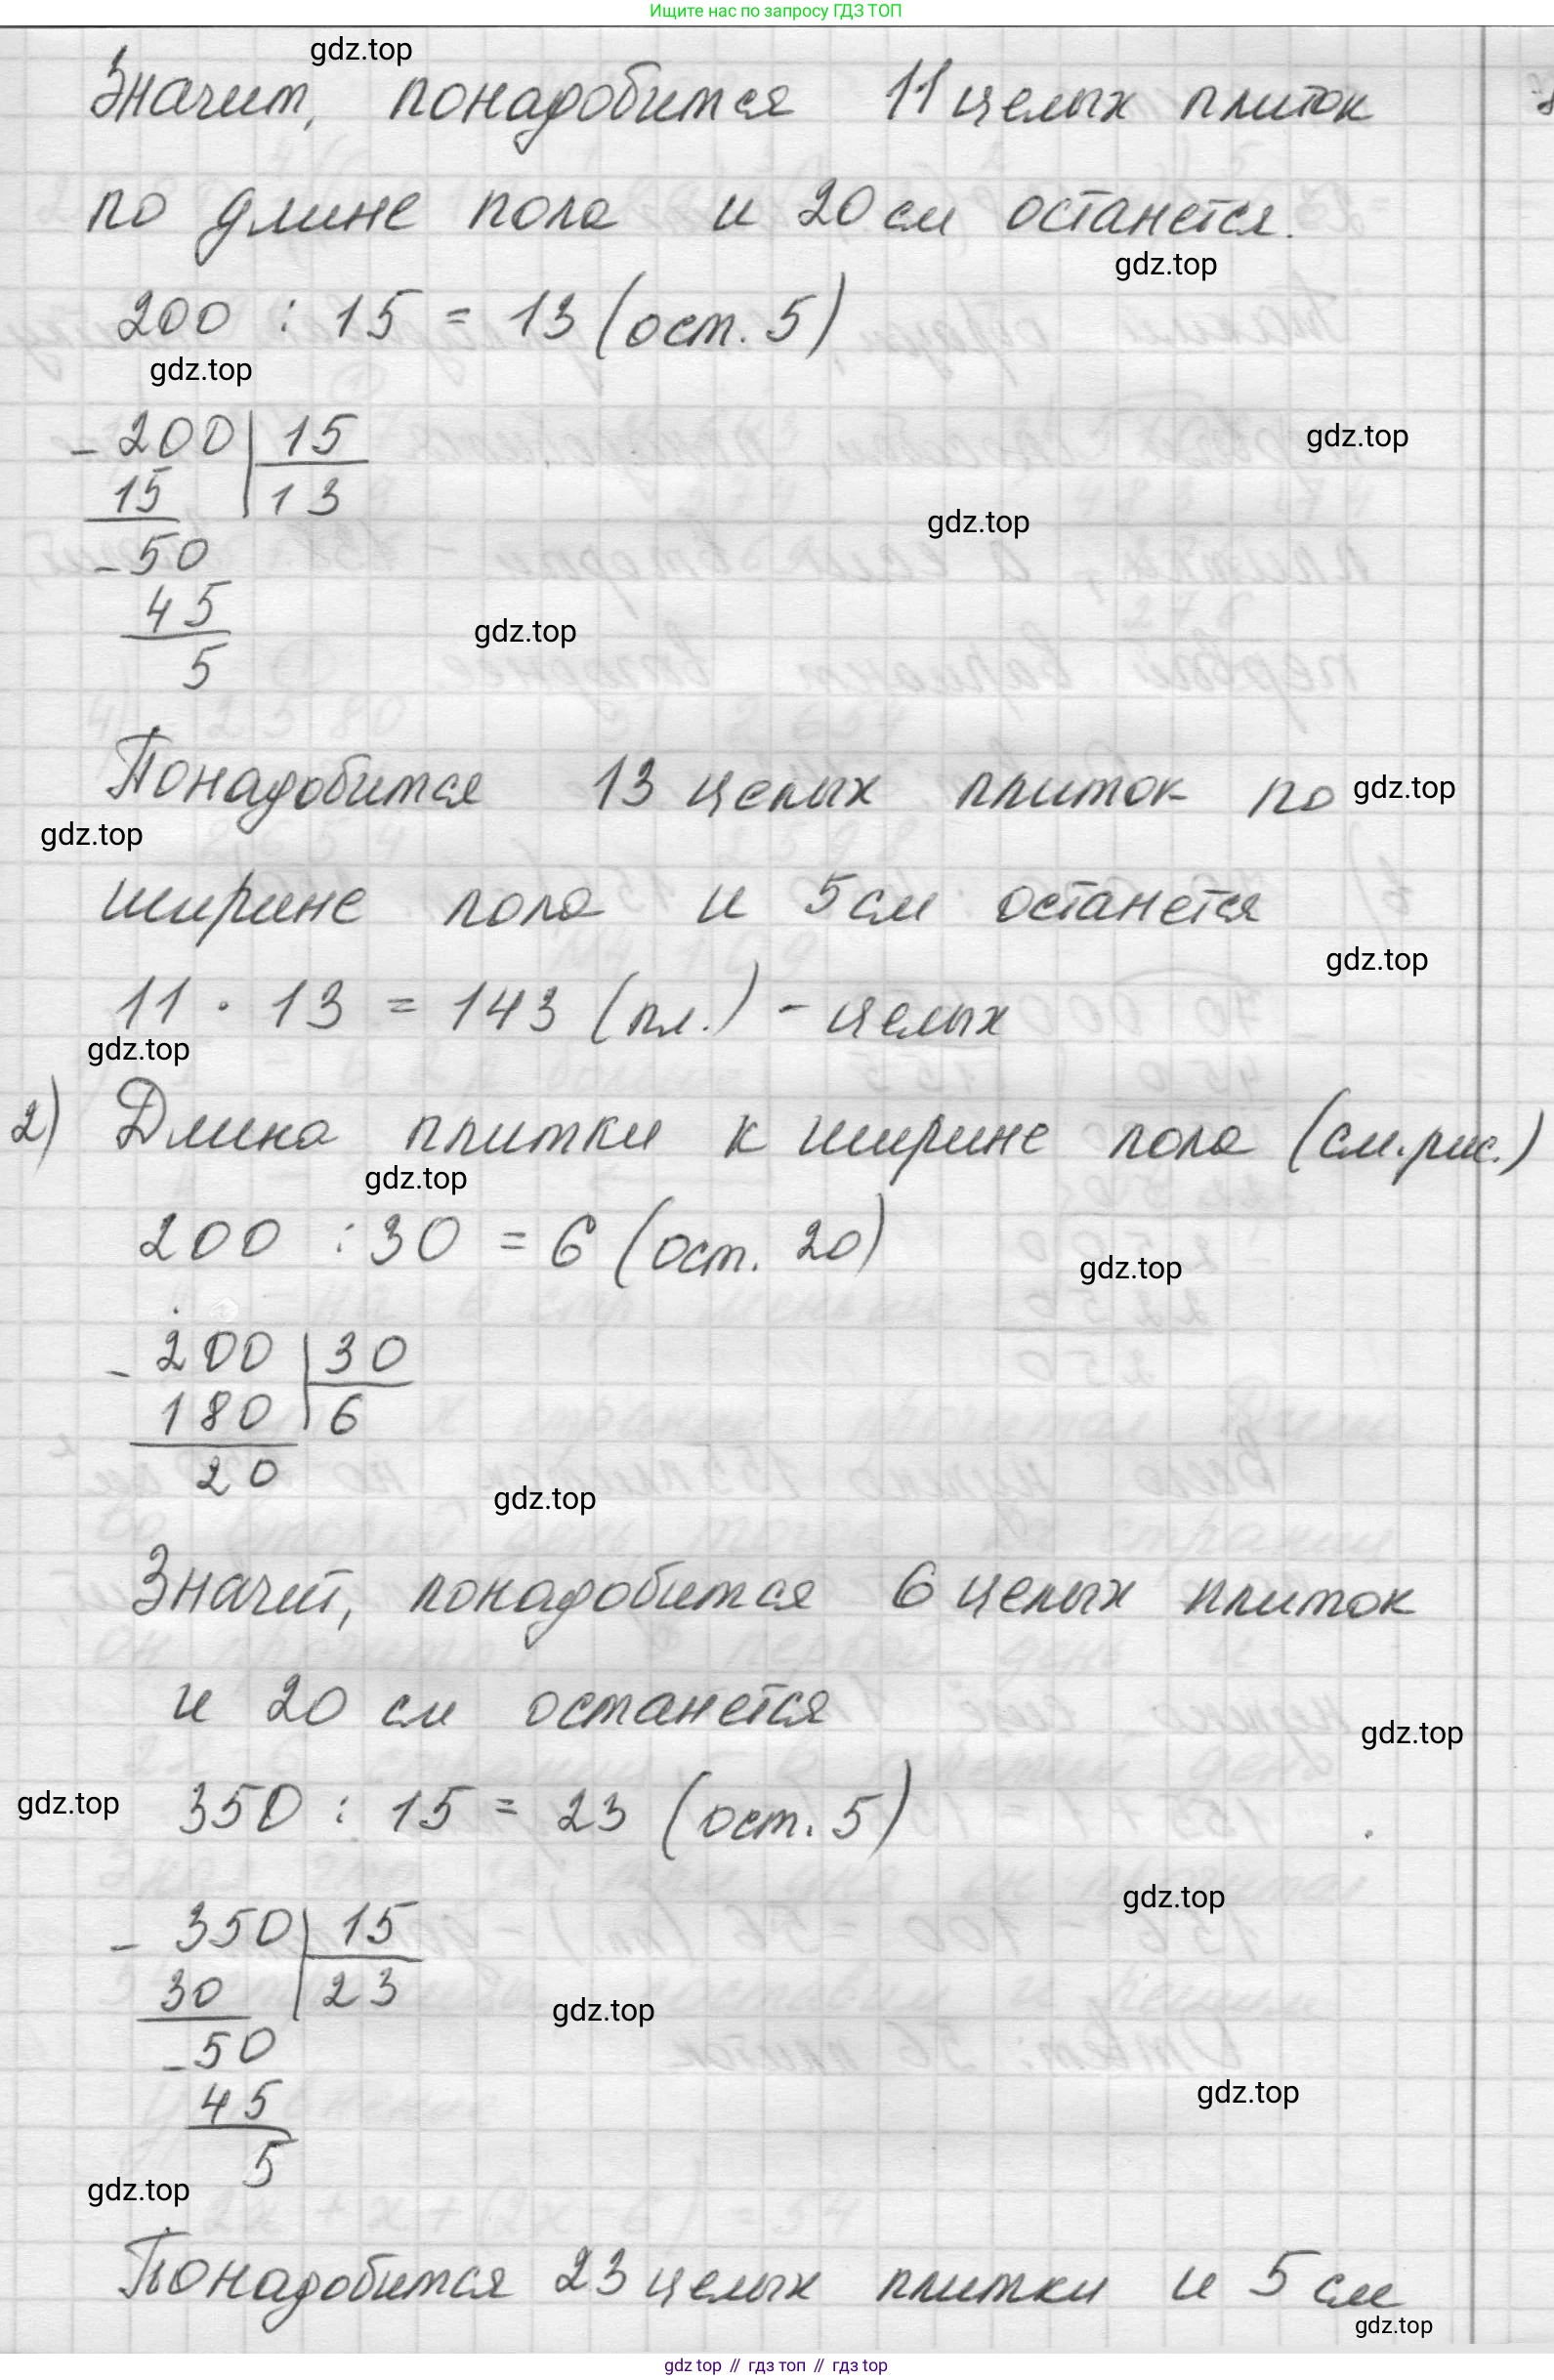 Ищите нас по запросу ГДЗ ТОП
gdz.top
Значит, понадобится 11 целых плиток
по длине пола и 20 см останется.
gdz.top
200 : 15 = 13 (ост. 5)
gdz.top
- 200 | 15
gdz.top
15 | 13
gdz.top
- 50
45
gdz.top
5
Понадобится 13 целых плиток по
gdz.top
gdz.top
ширине пола и 5 см останется
gdz.top
11 · 13 = 143 (пл.) - целых
gdz.top
2) Длина плитки к ширине пола (см. рис.)
gdz.top
200 : 30 = 6 (ост. 20)
gdz.top
- 200 | 30
180 | 6
20
gdz.top
Значит, понадобится 6 целых плиток
и 20 см останется
gdz.top
gdz.top
350 : 15 = 23 (ост. 5)
gdz.top
- 350 | 15
30 | 23
gdz.top
- 50
45
gdz.top
5
gdz.top
Понадобится 23 целых плитки и 5 см
gdz.top
gdz top // гдз топ // гдз top